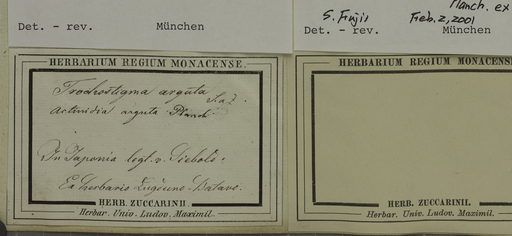 Det. - rev. München
S. Fujii Planch. ex
Feb. 2, 2001
Det. - rev. München
HERBARIUM REGIUM MONACENSE.
Trochostigma arguta S. & Z.
Actinidia arguta Planch
In Japonia legt. v. Siebold.
Ex herbario Lugduno-Batavo.
HERB. ZUCCARINII.
Herbar. Univ. Ludov. Maximil.
HERBARIUM REGIUM MONACENSE
HERB. ZUCCARINII.
Herbar. Univ. Ludov. Maximil.